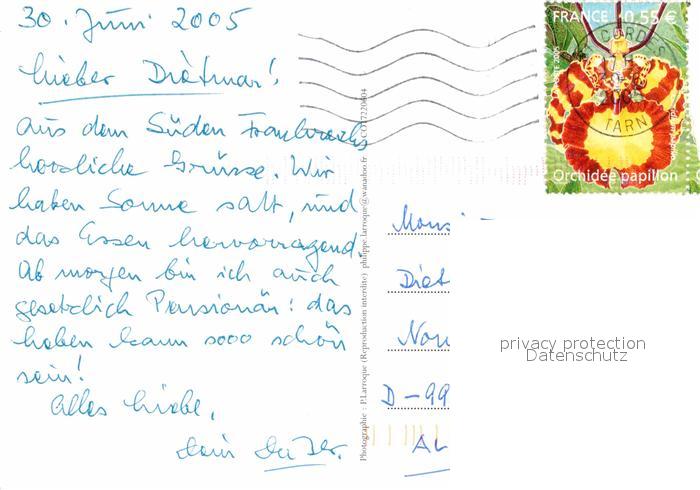 30. Juni 2005
Lieber Dietmar!
aus dem Süden Frankreichs
herzliche Grüsse. Wir
haben Sonne satt, und
das Essen hervorragend.
Ab morgen bin ich auch
gesetzlich Pensionär: das
haben kann sooo schön
sein!
Alles Liebe,
Dein
Photographie : P.Larroque (Reproduction interdite) philippe.larroque@wanadoo.fr
FRANCE 0,55 €
CORDES
TARN
Orchidée papillon
Mons
Diet
Non
D-99
privacy protection
Datenschutz